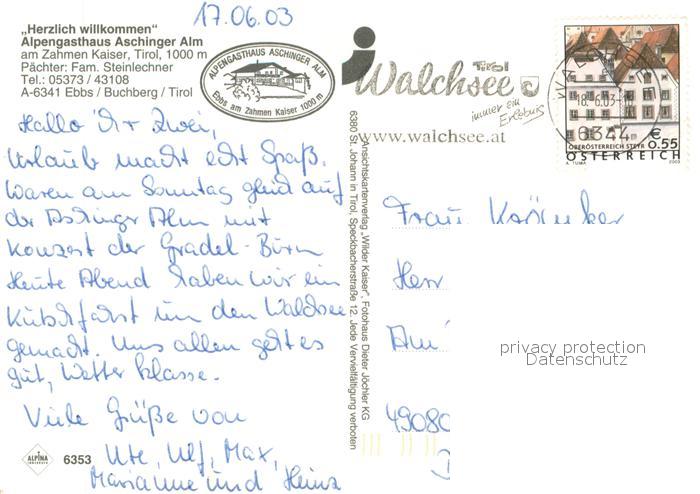 17.06.03
„Herzlich willkommen"
Alpengasthaus Aschinger Alm
am Zahmen Kaiser, Tirol, 1000 m
Pächter: Fam. Steinlechner
Tel.: 05373 / 43108
A-6341 Ebbs / Buchberg / Tirol
ALPENGASTHAUS ASCHINGER ALM
Ebbs am Zahmen Kaiser 1000 m
Hallo Ihr Zwei,
Urlaub macht echt Spaß.
Waren am Sonntag gleich auf
der Aschinger Alm mit
Konzert der Gradel-Buam
Heute Abend haben wir ein
Kutschfahrt um den Walchsee
gemacht. Uns allen geht es
gut, Wetter klasse.
Viele Grüße von
Ute, Ulf, Max,
Marianne und Heinz
ALPINA
6353
Ansichtskartenverlag „Wilder Kaiser", Fotohaus Dieter Jöchler KG
6380 St. Johann in Tirol, Speckbacherstraße 12. Jede Vervielfältigung verboten
Tirol
Walchsee
immer ein
Erlebnis
www.walchsee.at
18.6.03
6344
€ 0.55
OBERÖSTERREICH STEYR
ÖSTERREICH
A. TUMA
2003
Frau
Herr
49080
privacy protection
Datenschutz